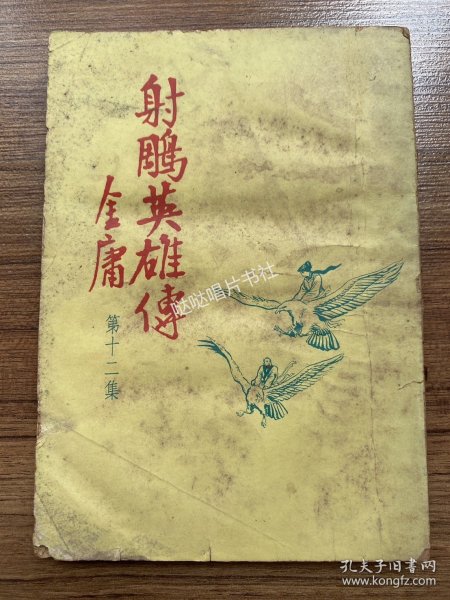 射鵰英雄傳
金庸
第十二集
哒哒唱片书社
孔夫子旧书网
www.kongfz.com